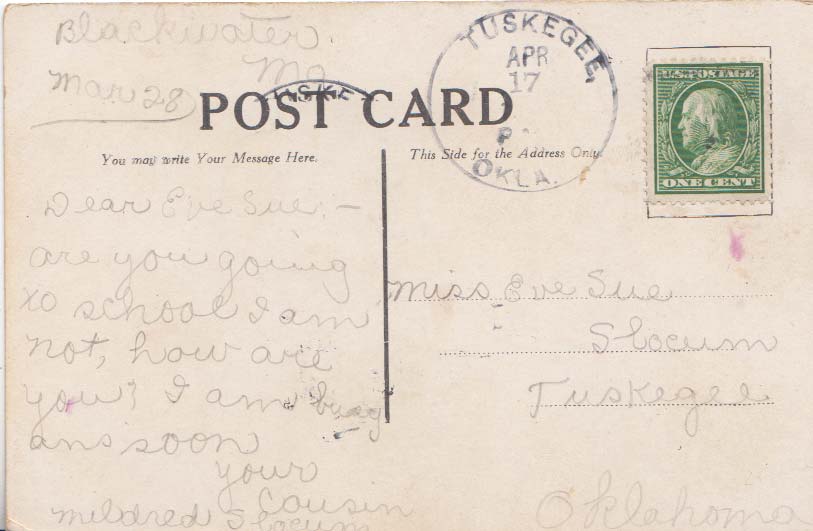 Blackwater
Mo
Mar 28
POST CARD
You may write Your Message Here.
This Side for the Address Only.
TUSKEGEE,
APR
17
P
OKLA.
USKE
U.S. POSTAGE
ONE CENT
Dear Eve Sue: –
are you going
to school I am
not, how are
you? I am busy
ans soon
your
Cousin
Mildred Slocum
Miss Eve Sue
Slocum
Tuskegee
Oklahoma